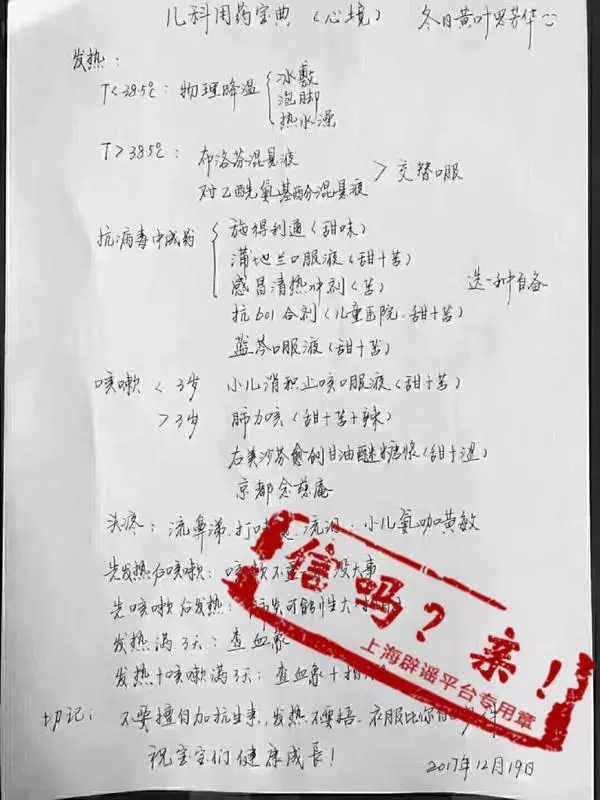 儿科用药宝典（心境） 冬日黄叶
发热：
T<38.5℃：物理降温 冰敷
泡脚
热水澡
T>38.5℃：布洛芬混悬液
对乙酰氨基酚混悬液 > 交替口服
抗病毒中成药 施得利通（甜味）
蒲地兰口服液（甜+苦）
感冒清热冲剂（苦） 选一种自备
抗601合剂（儿童医院.甜+苦）
蓝芩口服液（甜+苦）
咳嗽 <3岁 小儿消积止咳口服液（甜+苦）
>3岁 肺力咳（甜+苦+辣）
右美沙芬愈创甘油醚糖浆（甜+温）
京都念慈庵
头疼：流鼻涕.打 流泪：小儿氨咖黄敏
先发热后咳嗽：咳嗽不 没大事
先咳嗽后发热： 可能性大
发热满3天：查血象
发热+咳嗽满3天：查血象+
切记：不要擅自加抗生素，发热不要捂.衣服比你
祝宝宝们健康成长！
2017年12月19日
信吗？亲！
上海辟谣平台专用章